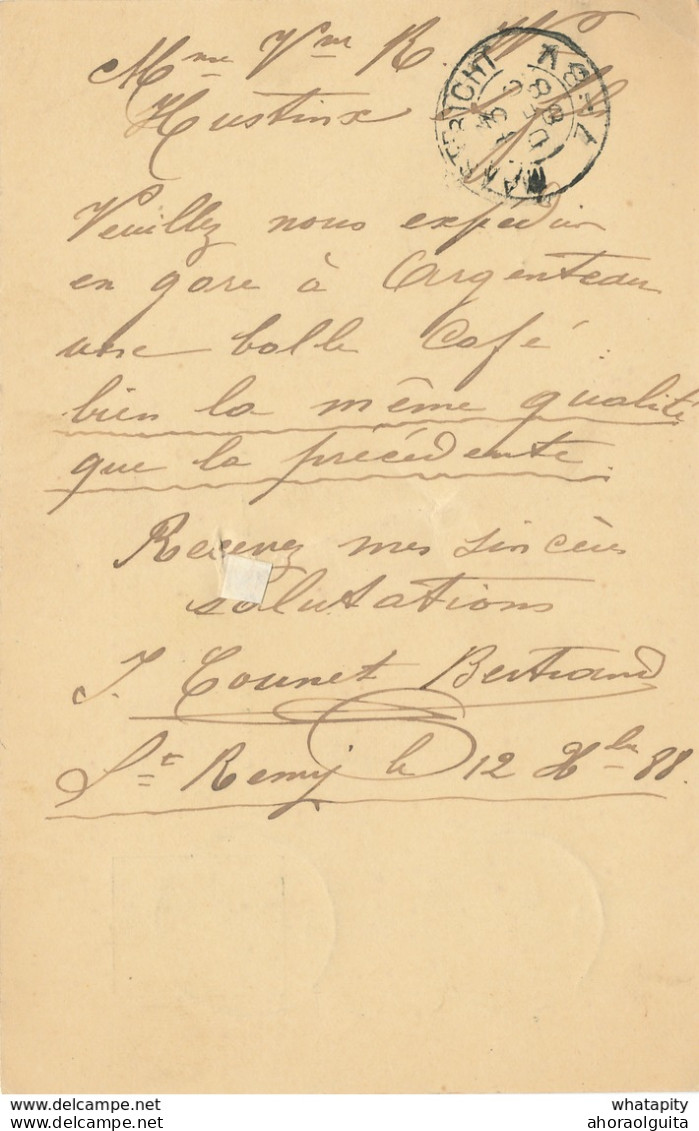 Mme Vve R.
Hustinx
MAASTRICHT
Veuillez nous expedier
en gare à Argenteau
une balle Café
bien la même qualité
que la précédente.
Recevez mes sincères
salutations
J. Counet Bertrand
St Remy le 12 Xbre 88.
whatapity
ahoraolguita